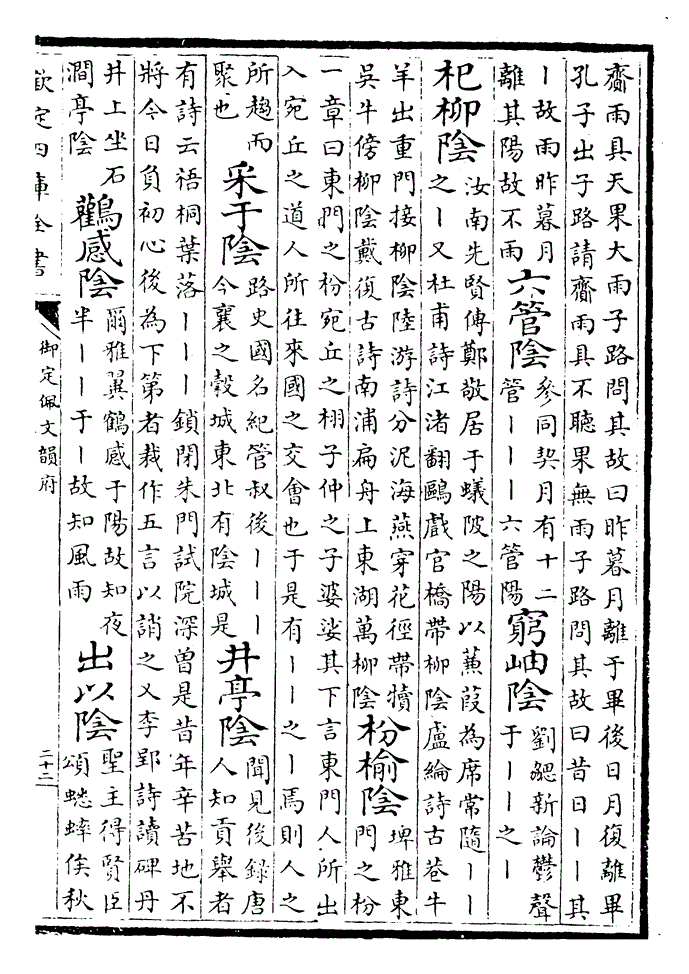 齋雨具天果大雨子路問其故曰昨暮月離于畢後日月復離畢
孔子出子路請齋雨具不聽果無雨子路問其故曰昔日丨丨其
丨故雨昨暮月
離其陽故不雨
六管陰
參同契月有十二
管丨丨丨六管陽
窮岫陰
劉勰新論鬱聲
于丨丨之丨
杞柳陰
汝南先賢傳鄭敬居于蟻陂之陽以蒹葭為席常隨丨丨
之丨又杜甫詩江渚翻鷗戲官橋帶柳陰盧綸詩古巷牛
羊出重門接柳陰陸游詩分泥海燕穿花徑帶犢
吳牛傍柳陰戴復古詩南浦扁舟上東湖萬柳陰
枌榆陰
埤雅東
門之枌
一章曰東門之枌宛丘之栩子仲之子婆娑其下言東門人所出
入宛丘之道人所往來國之交會也于是有丨丨之丨焉則人之
所趨而
聚也
采于陰
路史國名紀管叔後丨丨丨
今襄之穀城東北有陰城是
井亭陰
聞見後錄唐
人知貢舉者
有詩云梧桐葉落丨丨丨鎖閉朱門試院深曾是昔年辛苦地不
將今日負初心後為下第者裁作五言以誚之又李郢詩讀碑丹
井上坐石
澗亭陰
鸛感陰
爾雅翼鶴感于陽故知夜
半丨丨于丨故知風雨
出以陰
聖主得賢臣
頌蟋蟀俟秋
欽定四庫全書
御定佩文韻府
二十二